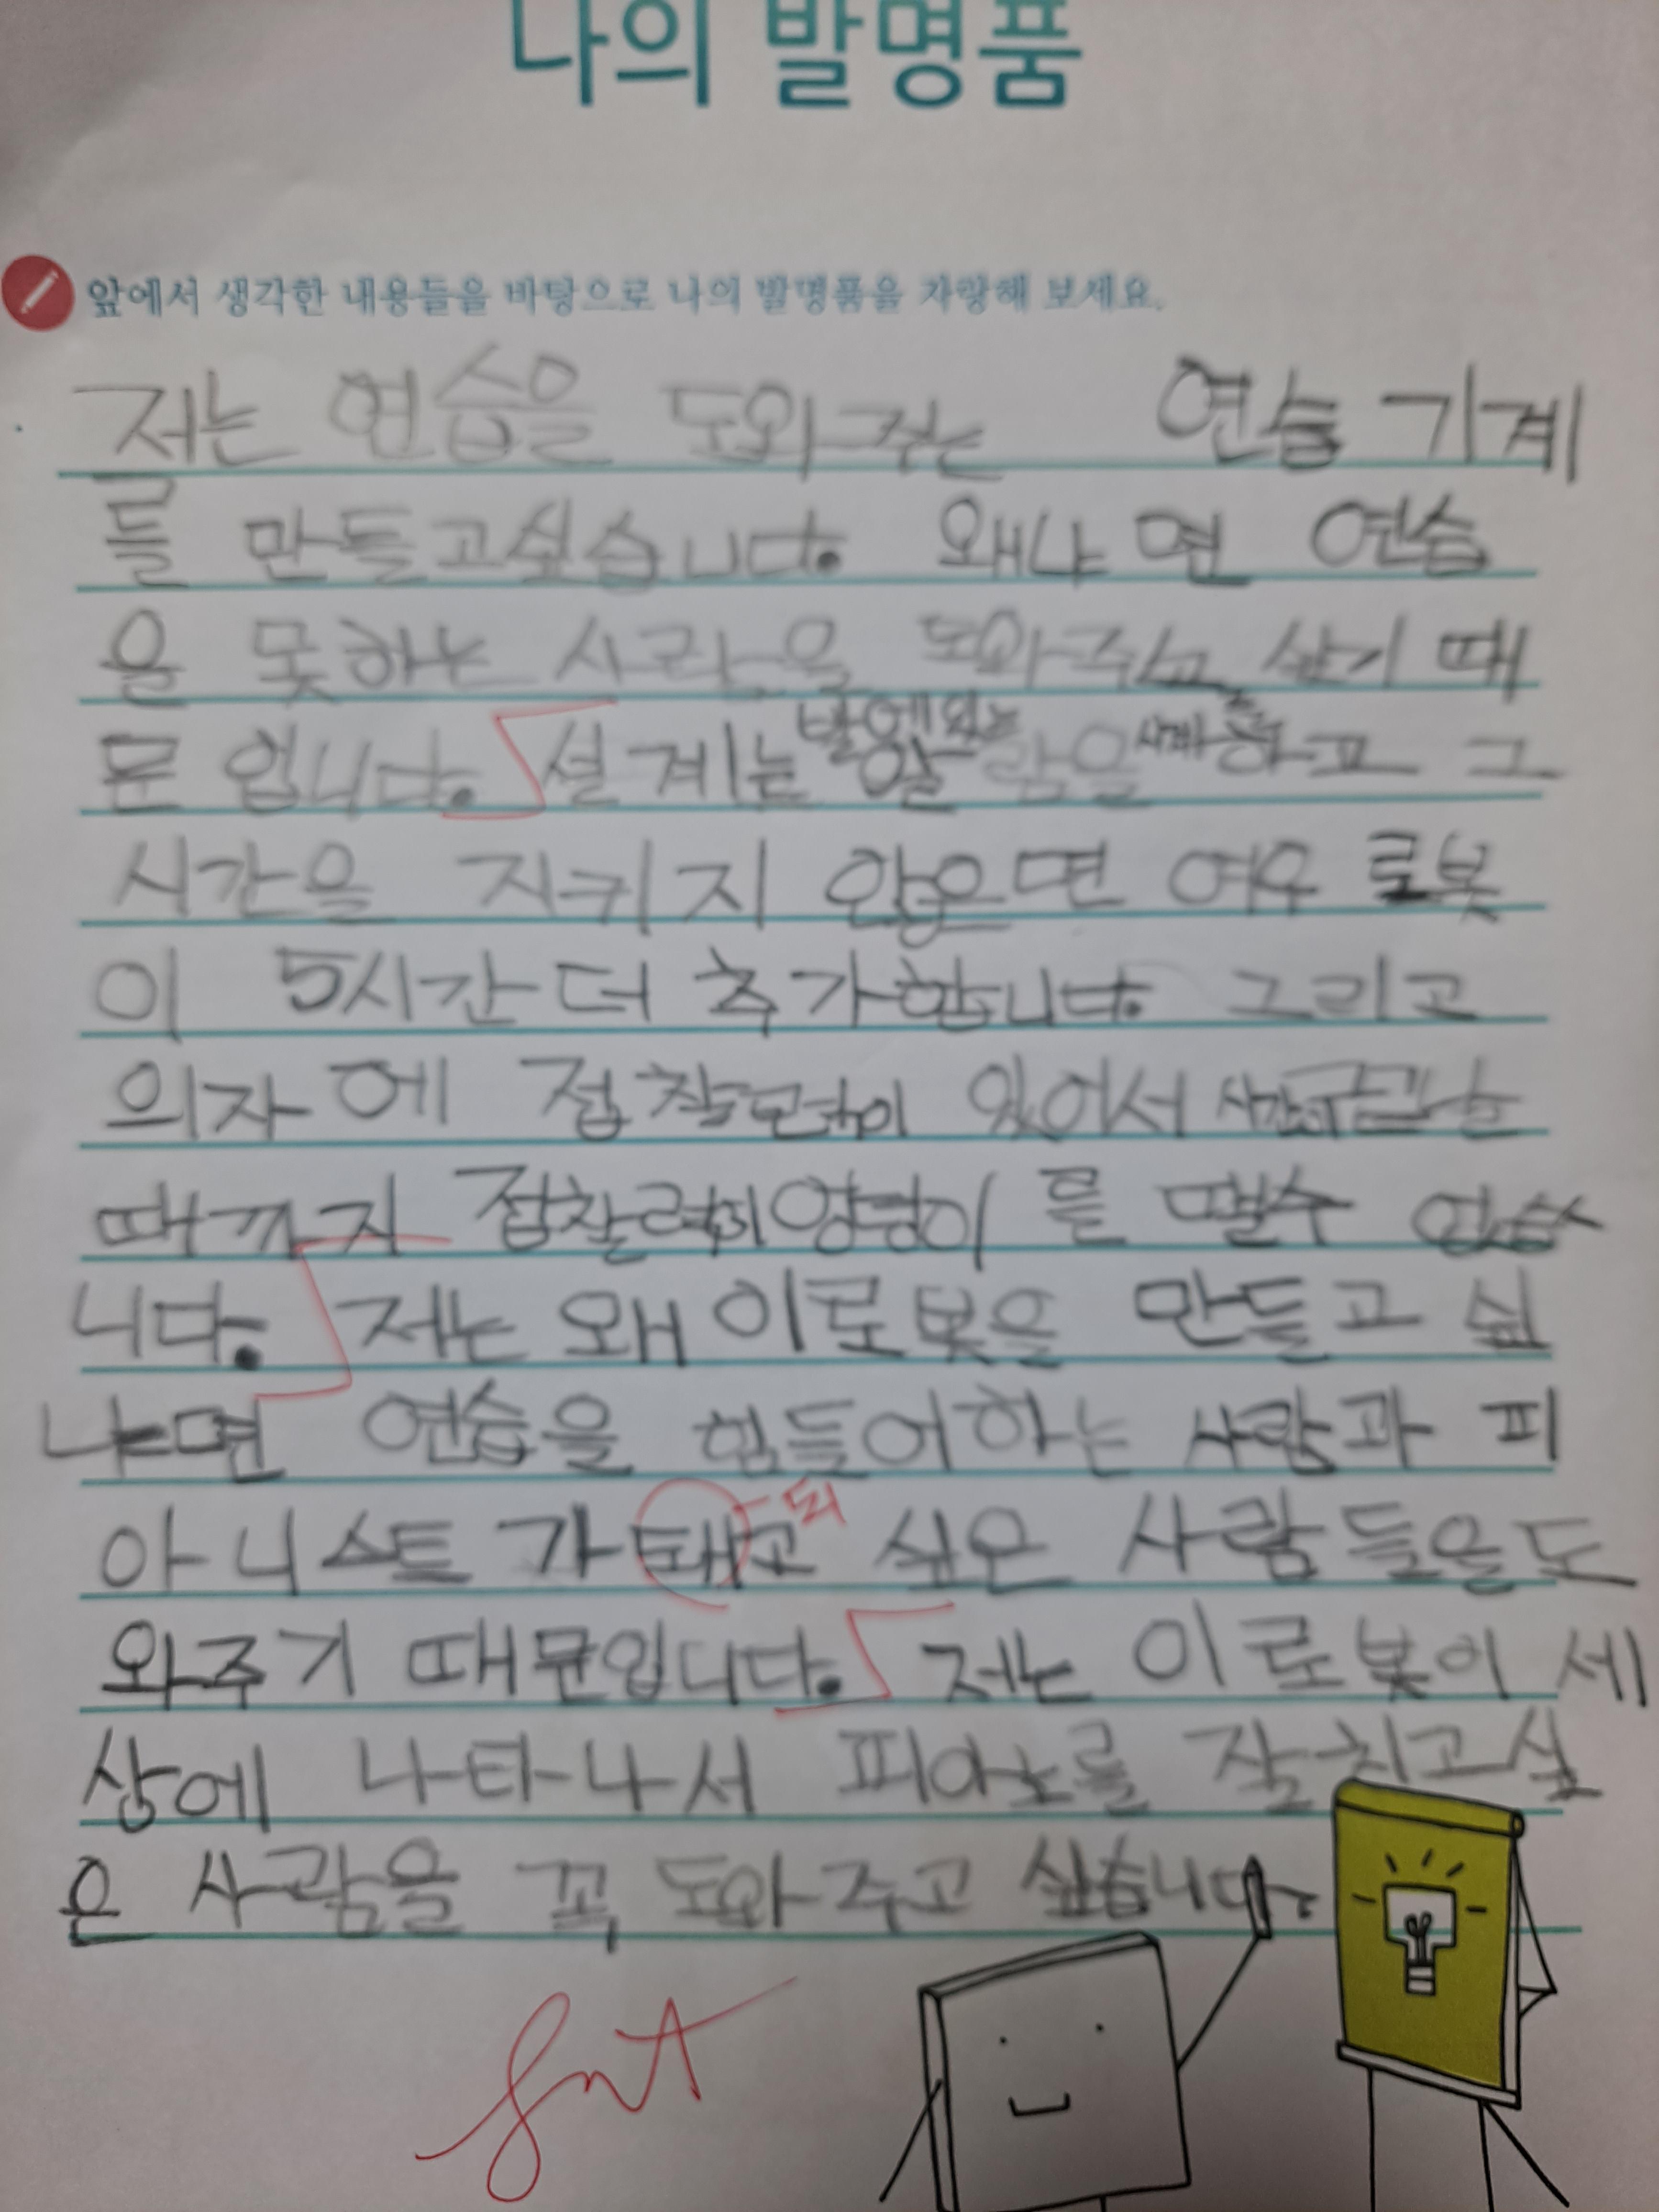 나의 발명품
앞에서 생각한 내용들을 바탕으로 나의 발명품을 자랑해 보세요.
저는 연습을 도와 주는 연습 기계
를 만들고싶습니다. 왜냐 면 연습
을 못하는 사람을 도와주고 싶기 때
문 입니다. 설계는 발에있는 알람을 하고 그
시간을 지키지 않으면 여우 로봇
이 5시간 더 추가합니다. 그리고
의자 에 있어서
때까지 엉덩이 를 뗄수 없습
니다. 저는 왜 이로봇을 만들고 싶
냐면 연습을 힘들어하는 사람과 피
아니스트 가 돼고 되 싶은 사람들을도
와주기 때문입니다. 저는 이로봇이 세
상에 나타나서 피아노를 잘 치고싶
은 사람을 꼭 도와 주고 싶습니다.